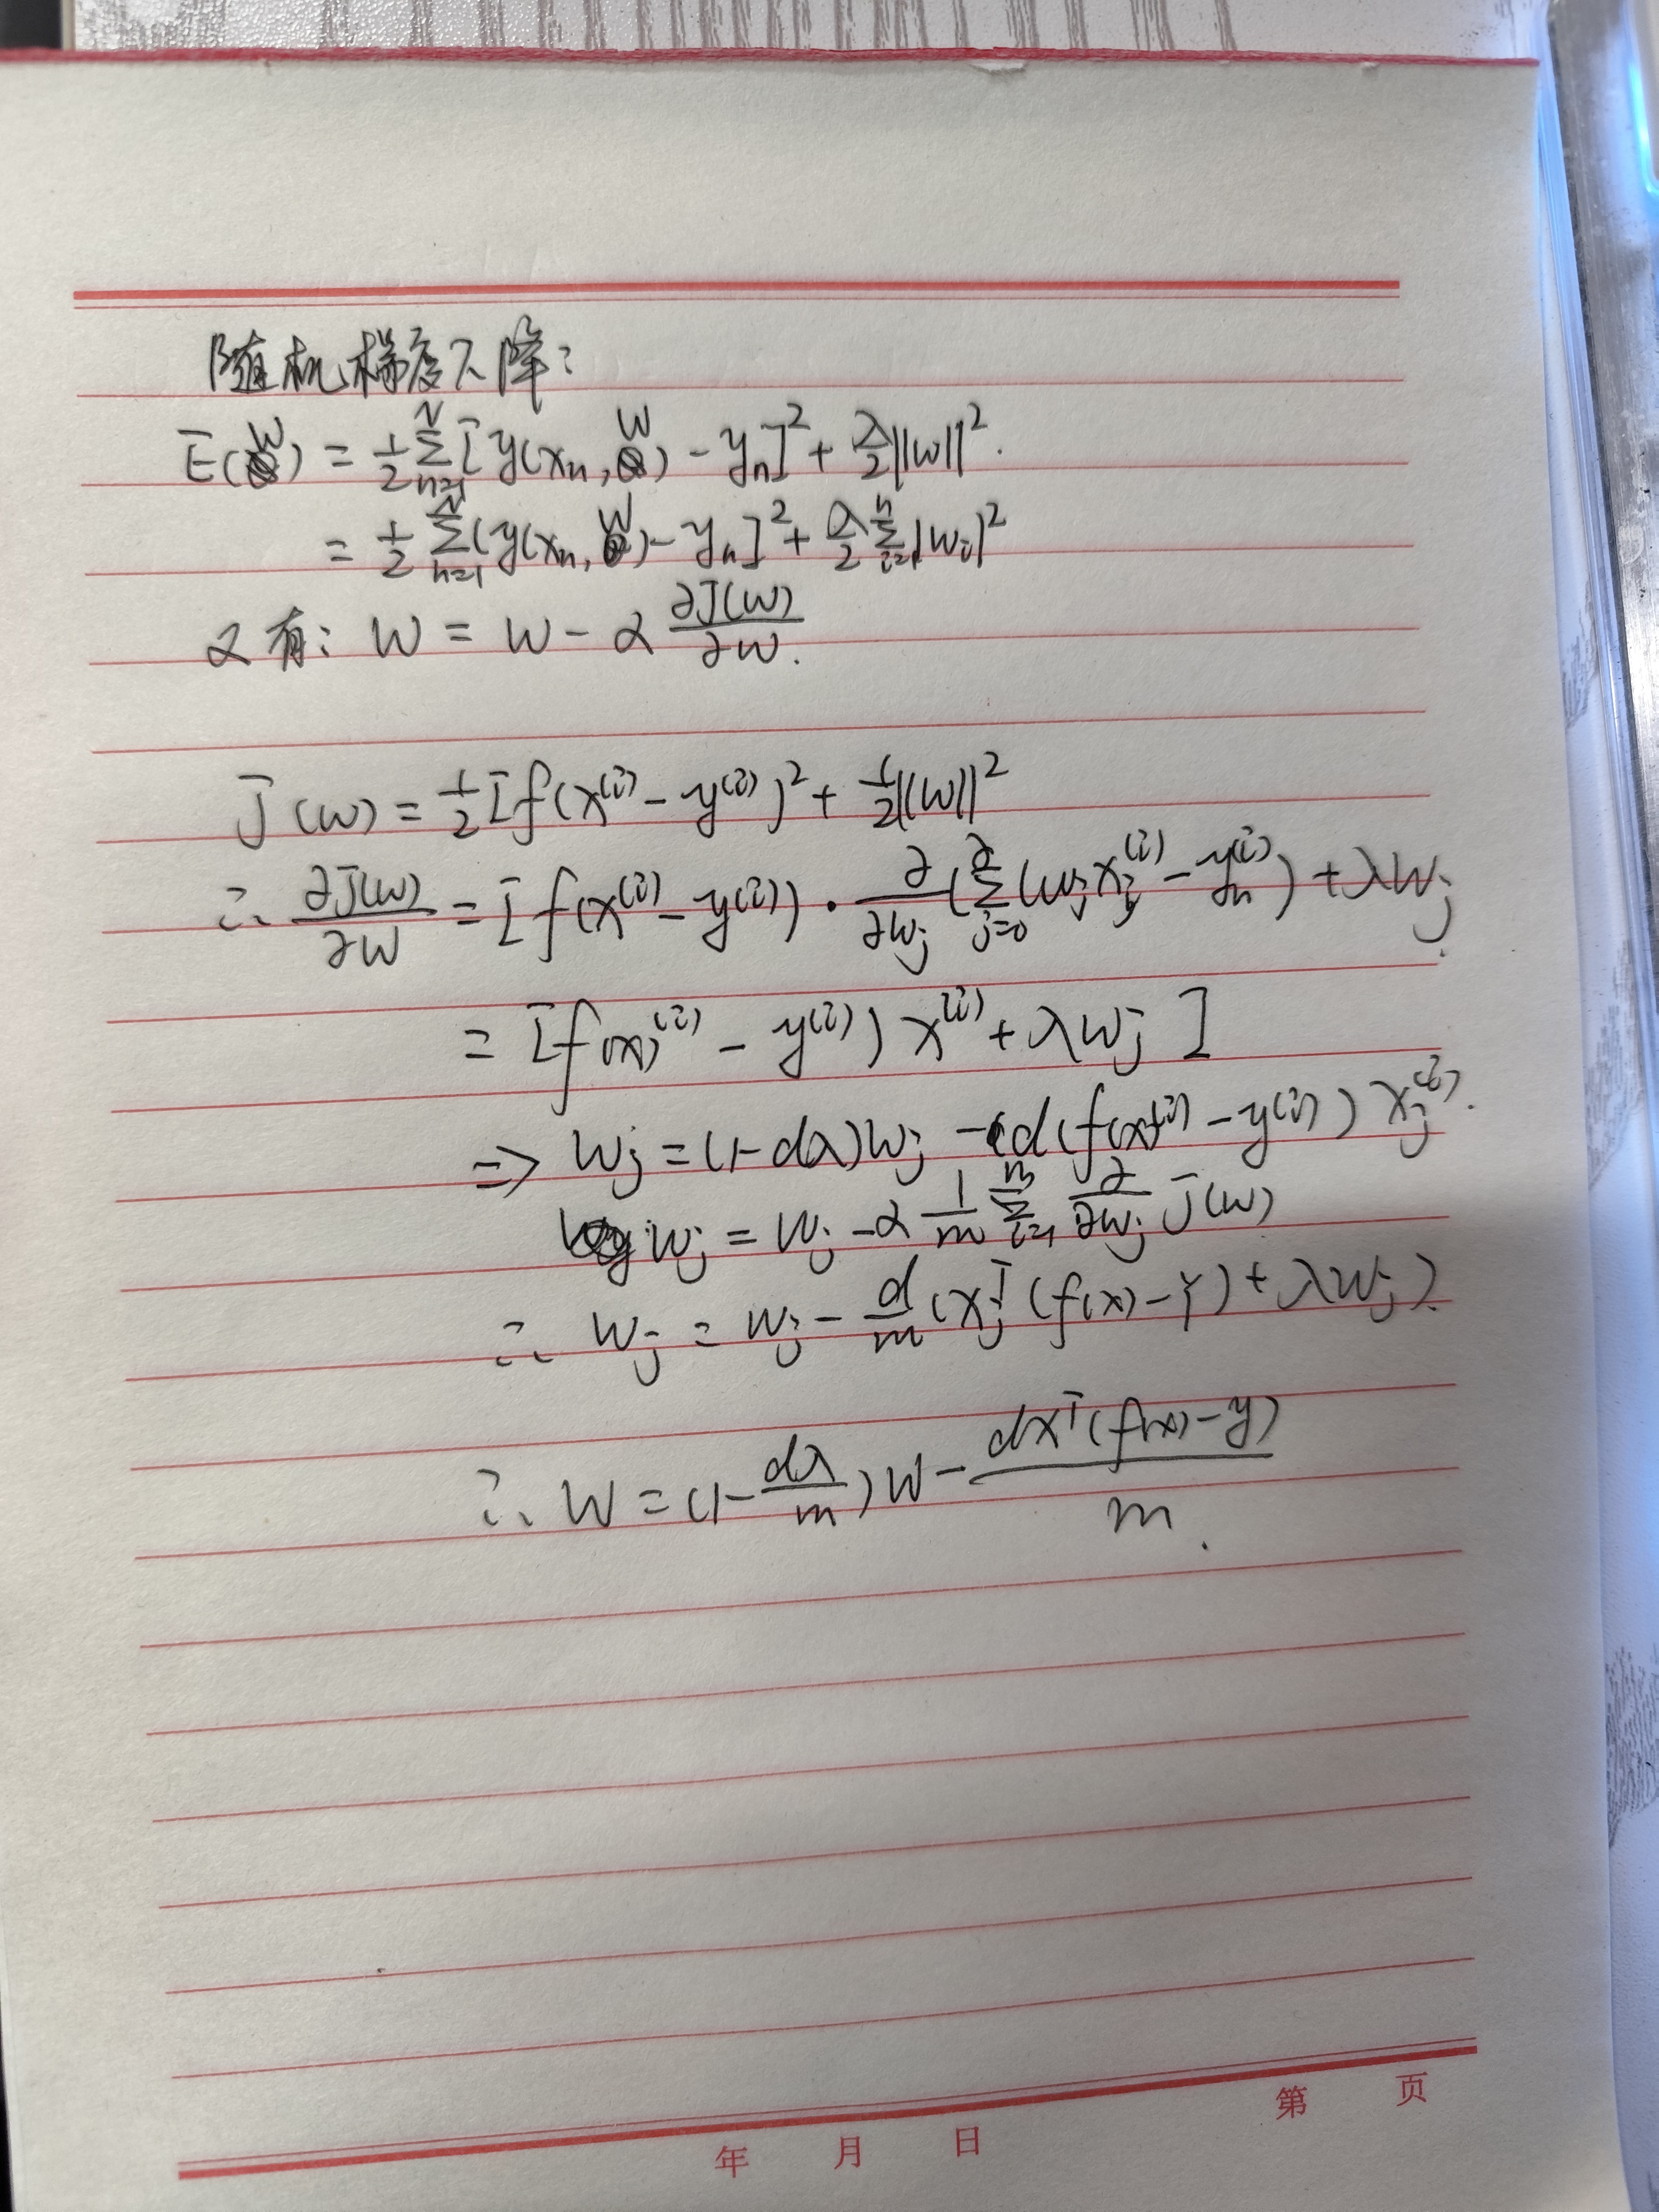 随机梯度下降：
E(W) = 1/2 Σ_{n=1}^{N} [y(x_n, W) - y_n]² + λ/2 ||w||².
= 1/2 Σ_{n=1}^{N} (y(x_n, W) - y_n]² + λ/2 Σ_{i=1}^{n} |w_i|²
又有： W = W - α ∂J(W)/∂W.
J(w) = 1/2 [f(x^{(i)} - y^{(i)})² + 1/2 ||(W)||²
∴ ∂J(W)/∂W = [f(x^{(i)} - y^{(i)}) · ∂/∂w_j (Σ_{j=0}^{2} (w_j x_j^{(i)} - y_n^{(i)}) + λW_j.
= [f(x)^{(i)} - y^{(i)}) x^{(i)} + λW_j ]
=> W_j = (1-αλ)W_j - (α(f(x)^{(i)} - y^{(i)}) x_j^{(i)}.
W_j = W_j - α 1/m Σ_{i=1}^{m} ∂/∂W_j J(W)
∴ W_j = W_j - α/m (X_j^T (f(x) - Y) + λW_j).
∴ W = (1 - αλ/m)W - αX^T(f(x) - y)/m.
第 页
年 月 日